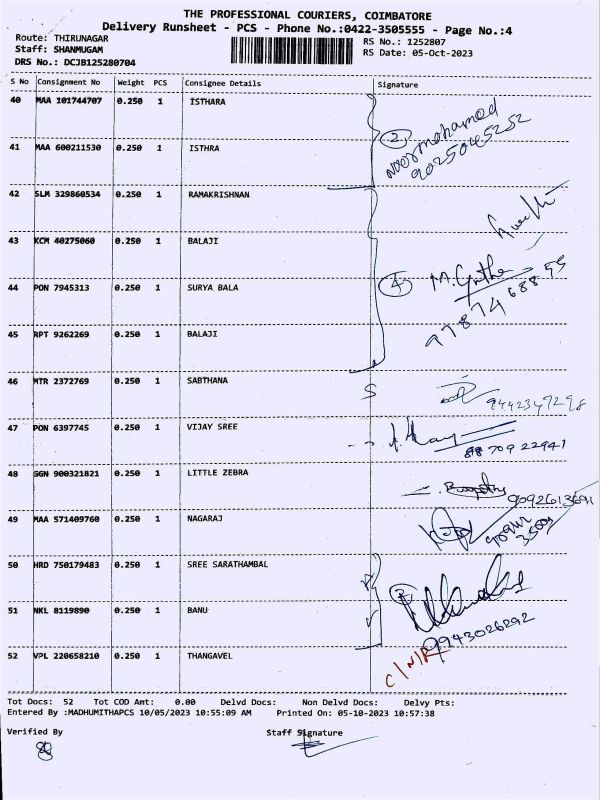 THE PROFESSIONAL COURIERS, COIMBATORE
Delivery Runsheet - PCS - Phone No.:0422-3505555 - Page No.:4
Route: THIRUNAGAR
RS No.: 1252807
Staff: SHANMUGAM
RS Date: 05-Oct-2023
DRS No.: DCJB125280704
S No Consignment No Weight PCS Consignee Details Signature
40 MAA 101744707 0.250 1 ISTHARA
2
Noormohamed
9025045252
41 MAA 600211530 0.250 1 ISTHRA
42 SLM 329860534 0.250 1 RAMAKRISHNAN
43 KCM 40275060 0.250 1 BALAJI
44 PON 7945313 0.250 1 SURYA BALA
4
45 RPT 9262269 0.250 1 BALAJI
46 MTR 2372769 0.250 1 SABTHANA
S
9442347298
47 PON 6397745 0.250 1 VIJAY SREE
88709 22941
48 GGN 900321821 0.250 1 LITTLE ZEBRA
9092613691
49 MAA 571409760 0.250 1 NAGARAJ
50 HRD 750179483 0.250 1 SREE SARATHAMBAL
51 NKL 8119890 0.250 1 BANU
9943026292
52 VPL 220658210 0.250 1 THANGAVEL
C/N/R
Tot Docs: 52 Tot COD Amt: 0.00 Delvd Docs: Non Delvd Docs: Delvy Pts:
Entered By :MADHUMITHAPCS 10/05/2023 10:55:09 AM Printed On: 05-10-2023 10:57:38
Verified By Staff Signature